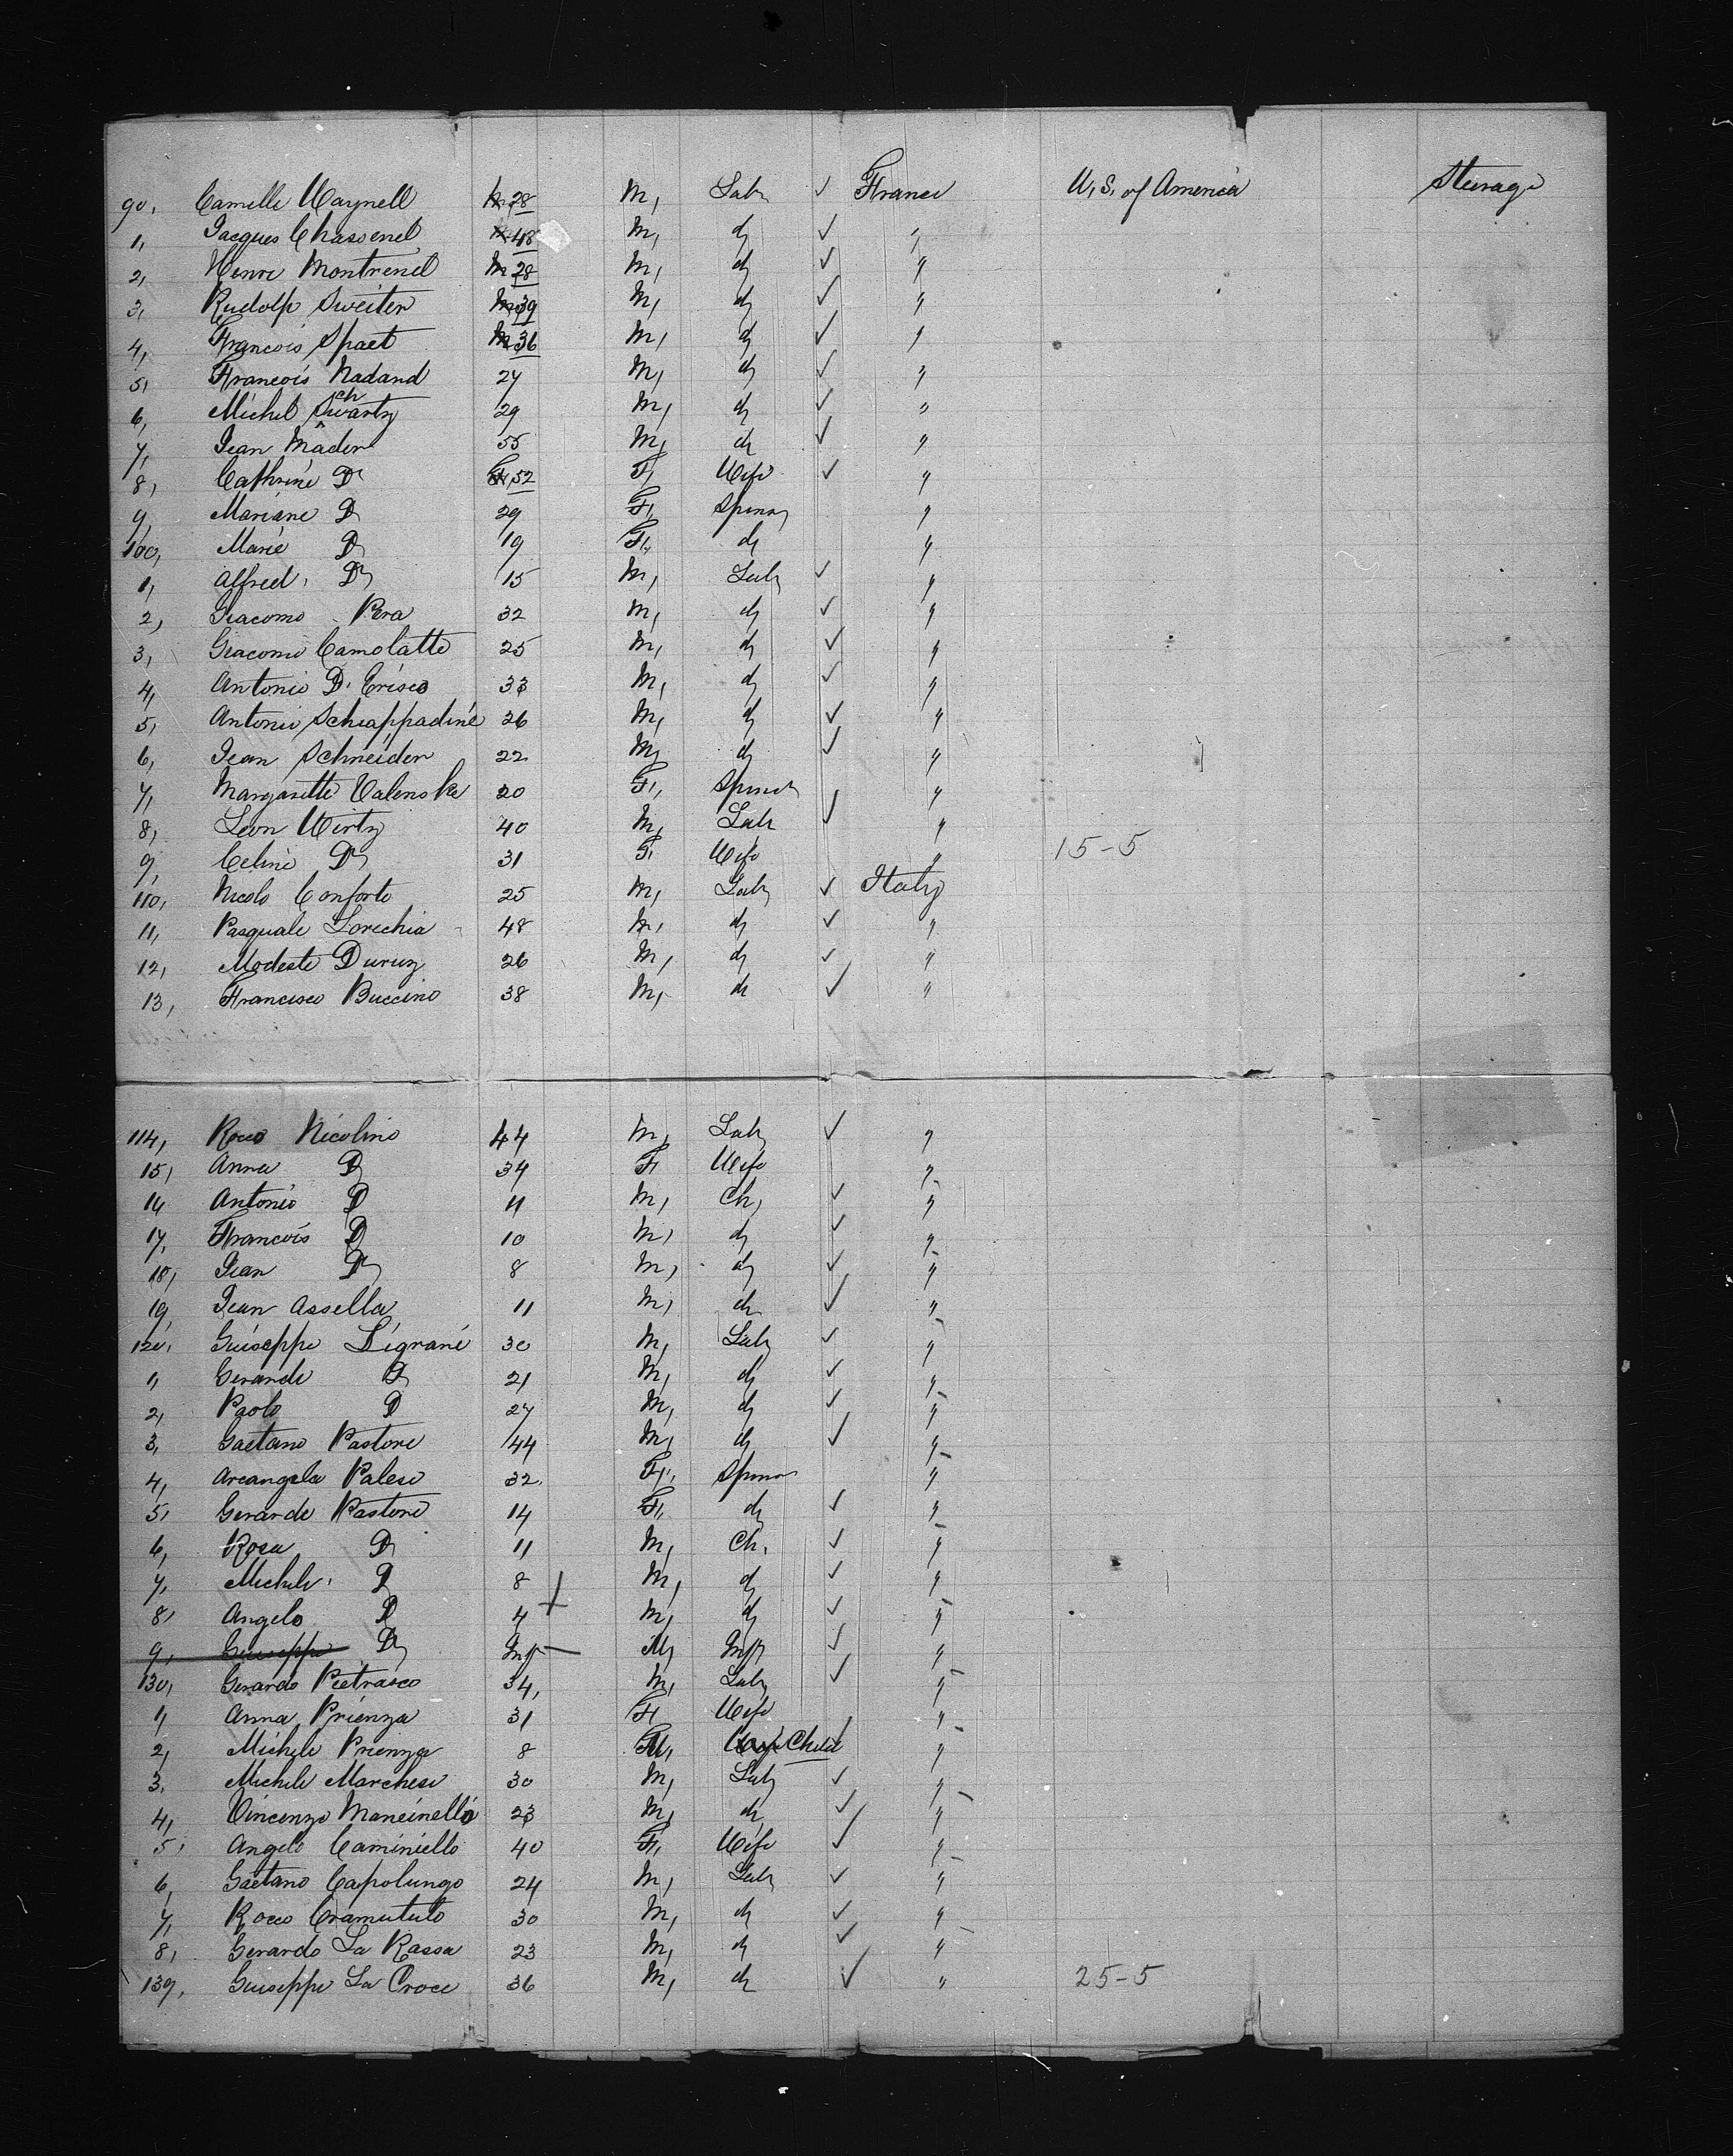 90, Camille Waynell 28 M, Labr ✓ France U.S. of America Steerage
1, Jacques Chassenel 48 M, do ✓ "
2, Henri Montrenel 28 M, do ✓ "
3, Rudolp Sweiter 39 M, do ✓ "
4, Francois Spaet 36 M, do ✓ "
5, Francois Nadand 27 M, do ✓ "
6, Michel Schwartz 29 M, do ✓ "
7, Jean Mâder 55 M, do ✓ "
8, Cathrine Do 52 F, Wife ✓ "
9, Mariane Do 29 F, Spinr "
100, Marie Do 19 F, do "
1, Alfred, Do 15 M, Labr ✓ "
2, Giacomo Pera 32 M, do ✓ "
3, Giacomo Camolatte 25 M, do ✓ "
4, Antonio D. Crisco 33 M, do ✓ "
5, Antonio Schiappadine 26 M, do ✓ "
6, Jean Schneider 22 M, do ✓ "
7, Margarette Valenske 20 F, Spinr ✓ "
8, Leon Wirtz 40 M, Labr "
9, Celine Do 31 F, Wife " 15-5
110, Nicolo Conforto 25 M, Labr ✓ Italy
11, Pasquale Lorechia 48 M, do ✓ "
12, Modeste Duruz 26 M, do ✓ "
13, Francisco Buccino 38 M, do ✓ "
114, Rocco Nicolino 44 M, Labr ✓ "
15, Anna Do 34 F, Wife "
16 Antonio Do 11 M, Ch, ✓ "
17, Francois Do 10 M, do ✓ "
18, Jean Do 8 M, do ✓ "
19, Jean Assella 11 M, do ✓ "
120, Guiseppe Ligrane 30 M, Labr ✓ "
1, Gerarde Do 21 M, do ✓ "
2, Paolo Do 27 M, do ✓ "
3, Gaetano Pastore 44 M, do ✓ "
4, Arcangela Palese 32 F, Spinr "
5, Gerarde Pastore 14 F, do ✓ "
6, Rosa Do 11 M, Ch, ✓ "
7, Michele, Do 8 M, do ✓ "
8, Angelo Do 4 M, do ✓ "
9, Guiseppe Do Inft M, Inft ✓ "
130, Gerardo Pietrasco 34, M, Labr ✓ "
1, Anna Prienza 31 F, Wife "
2, Michele Prienza 8 M, Child ✓ "
3, Michele Marchese 30 M, Labr ✓ "
4, Vincenzo Mancinello 23 M, do ✓ "
5, Angelo Caminiello 40 F, Wife ✓ "
6, Gaetano Capolungo 24 M, Labr ✓ "
7, Rocco Cramututo 30 M, do ✓ "
8, Gerardo La Rassa 23 M, do ✓ "
139, Guiseppe La Croce 36 M, do ✓ " 25-5